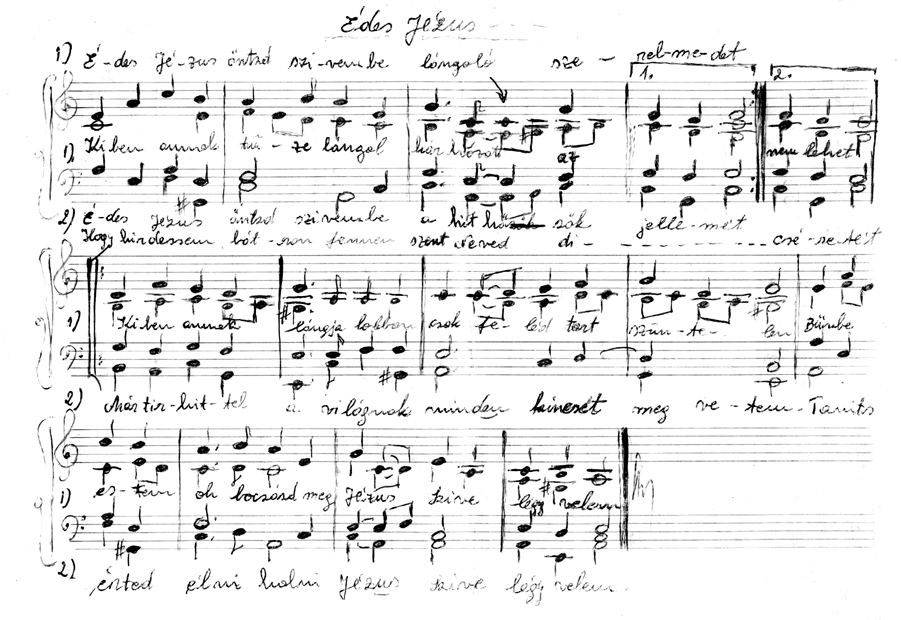 Édes Jézus
1) É-des Jé-zus öntsd szi-vembe lángoló sze - rel-me-det
1. 2.
1) Kiben annak tü-ze lángol az nem lehet
2) É-des Jézus öntsd szivembe a hit hősök sők jelle-mét
Hogy hirdessem bát-ran fennen szent neved di- csé-re-tét
1) Kiben annak lángja lobban csak fe-léd tart szün-te-len Bűnbe
2) Mártir-hit-tel a világnak minden kincsét meg ve-tem-Tanits
1) es-tem oh bocsásd meg Jézus szive légy velem
2) érted élni halni Jézus szive légy velem